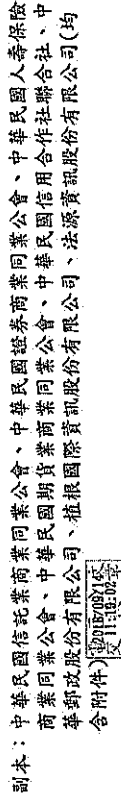 副本：中華民國信託業商業同業公會、中華民國證券商業同業公會、中華民國人壽保險
商業同業公會、中華民國期貨業商業同業公會、中華民國信用合作社聯合社、中
華郵政股份有限公司、植根國際資訊股份有限公司、法源資訊股份有限公司(均
含附件)